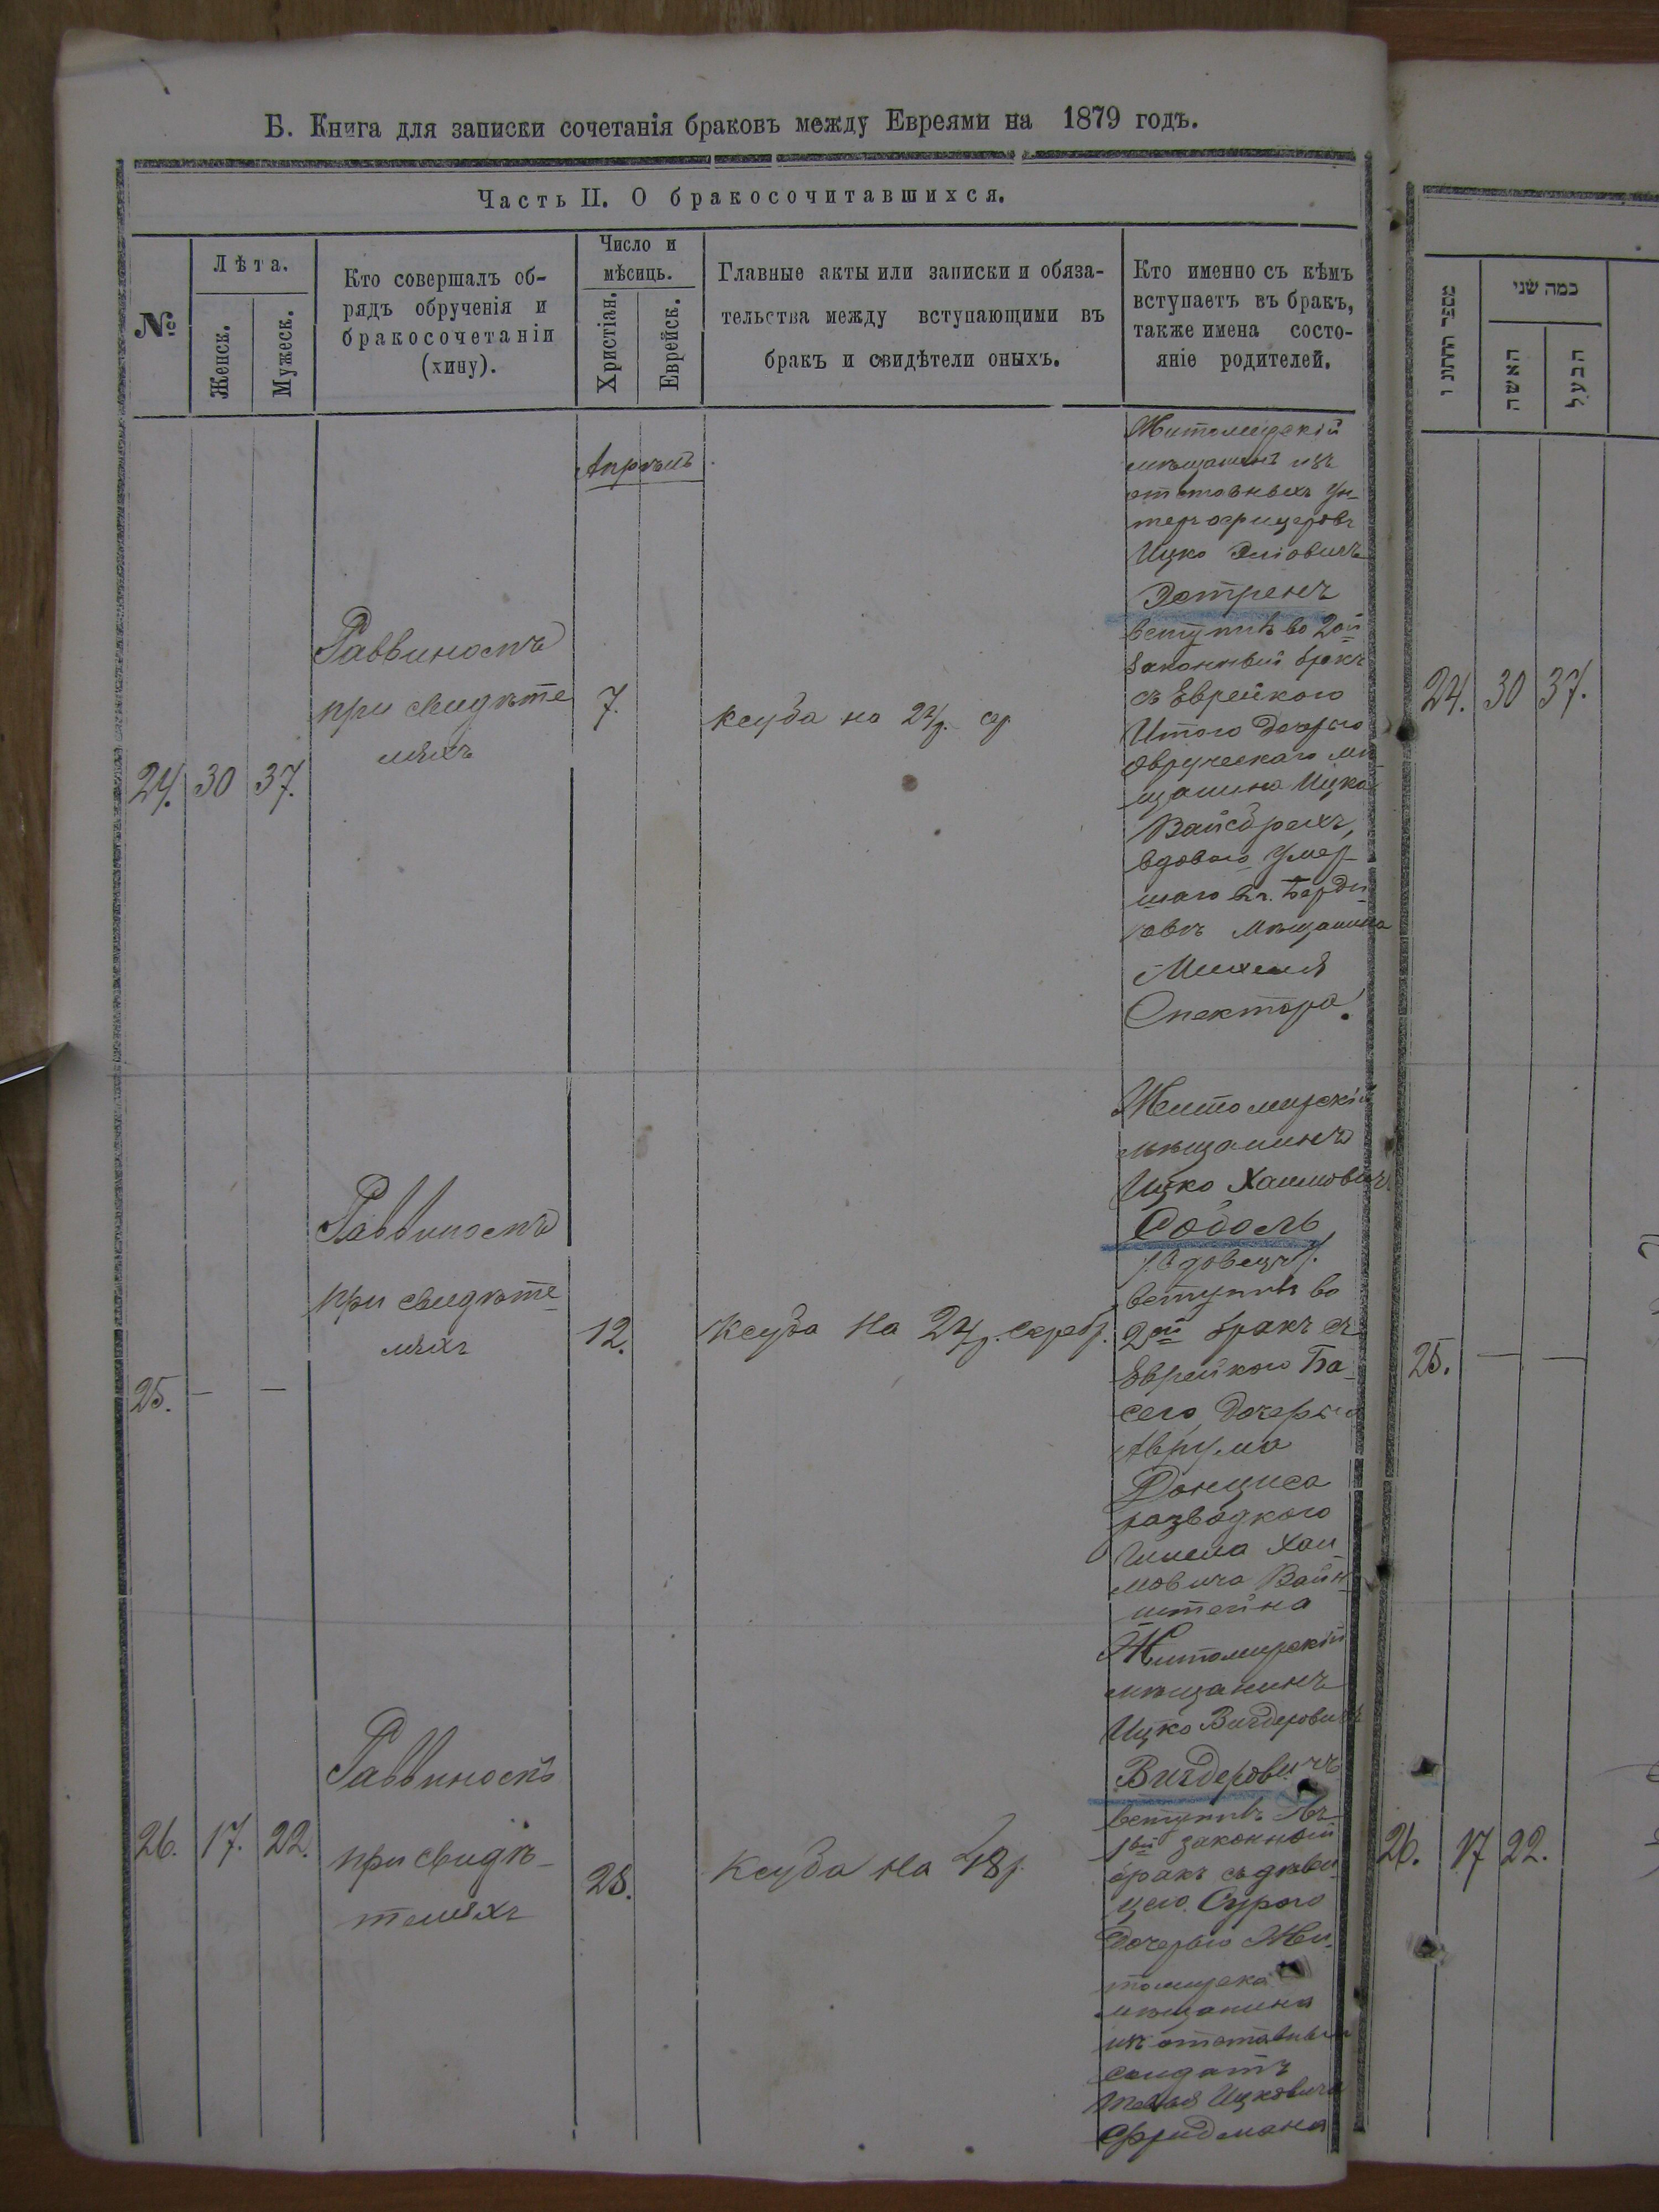 Б. Книга для записки сочетанія браковъ между Евреями на 1879 годъ.
Часть II. О бракосочитавшихся.
№
Лѣта.
Женск.
Мужеск.
Кто совершалъ об-
рядъ обрученія и
бракосочетаніи
(хину).
Число и
мѣсяць.
Христіан.
Еврейск.
Главные акты или записки и обяза-
тельства между вступающими въ
бракъ и свидѣтели оныхъ.
Кто именно съ кѣмъ
вступаетъ въ бракъ,
также имена состо-
яніе родителей.
Апрѣль
24. 30 37.
Раввиномъ
при свидѣте
ляхъ
7.
Ксуба на 24 р. ср.
Житомирскій
мѣщанинъ изъ
отставныхъ Ун-
теръ офицеровъ
Ицко Эліовичъ
Эстренъ
вступилъ во 2ой
законный бракъ
съ Еврейкою
Итою дочерью
Овручскаго мѣ
щанина Ицка
Вайсбрехъ,
вдовою умер-
шаго въ г. Берди
човѣ мѣщанина
Михеля
Спектора.
25. — —
Раввиномъ
при свидѣте-
ляхъ
12.
Ксуба на 24 р. серебр.
Житомирскій
мѣщанинъ
Ицко Хаимовичъ
Соболь
/вдовецъ/
вступилъ во
2ой бракъ съ
Еврейкою Ба-
сею, дочерью
Аврума
Донциса
разводкою
Хаи
мовича Вайн-
штейна
26. 17. 22.
Раввиномъ
при свидѣ-
теляхъ
28.
Ксуба на 48 р.
Житомирскій
мѣщанинъ
Ицко Вигдеровичъ
Вигдеровичъ
вступилъ въ
1ый законный
бракъ съ дѣви-
цею Сурою
дочерью Жи-
томирска
мѣщанина
изъ отставныхъ
солдатъ
Ицковича
Фридмана
מספר החתונו
כמה שני
האשה
הבעל
24. 30 37.
25. — —
26. 17 22.